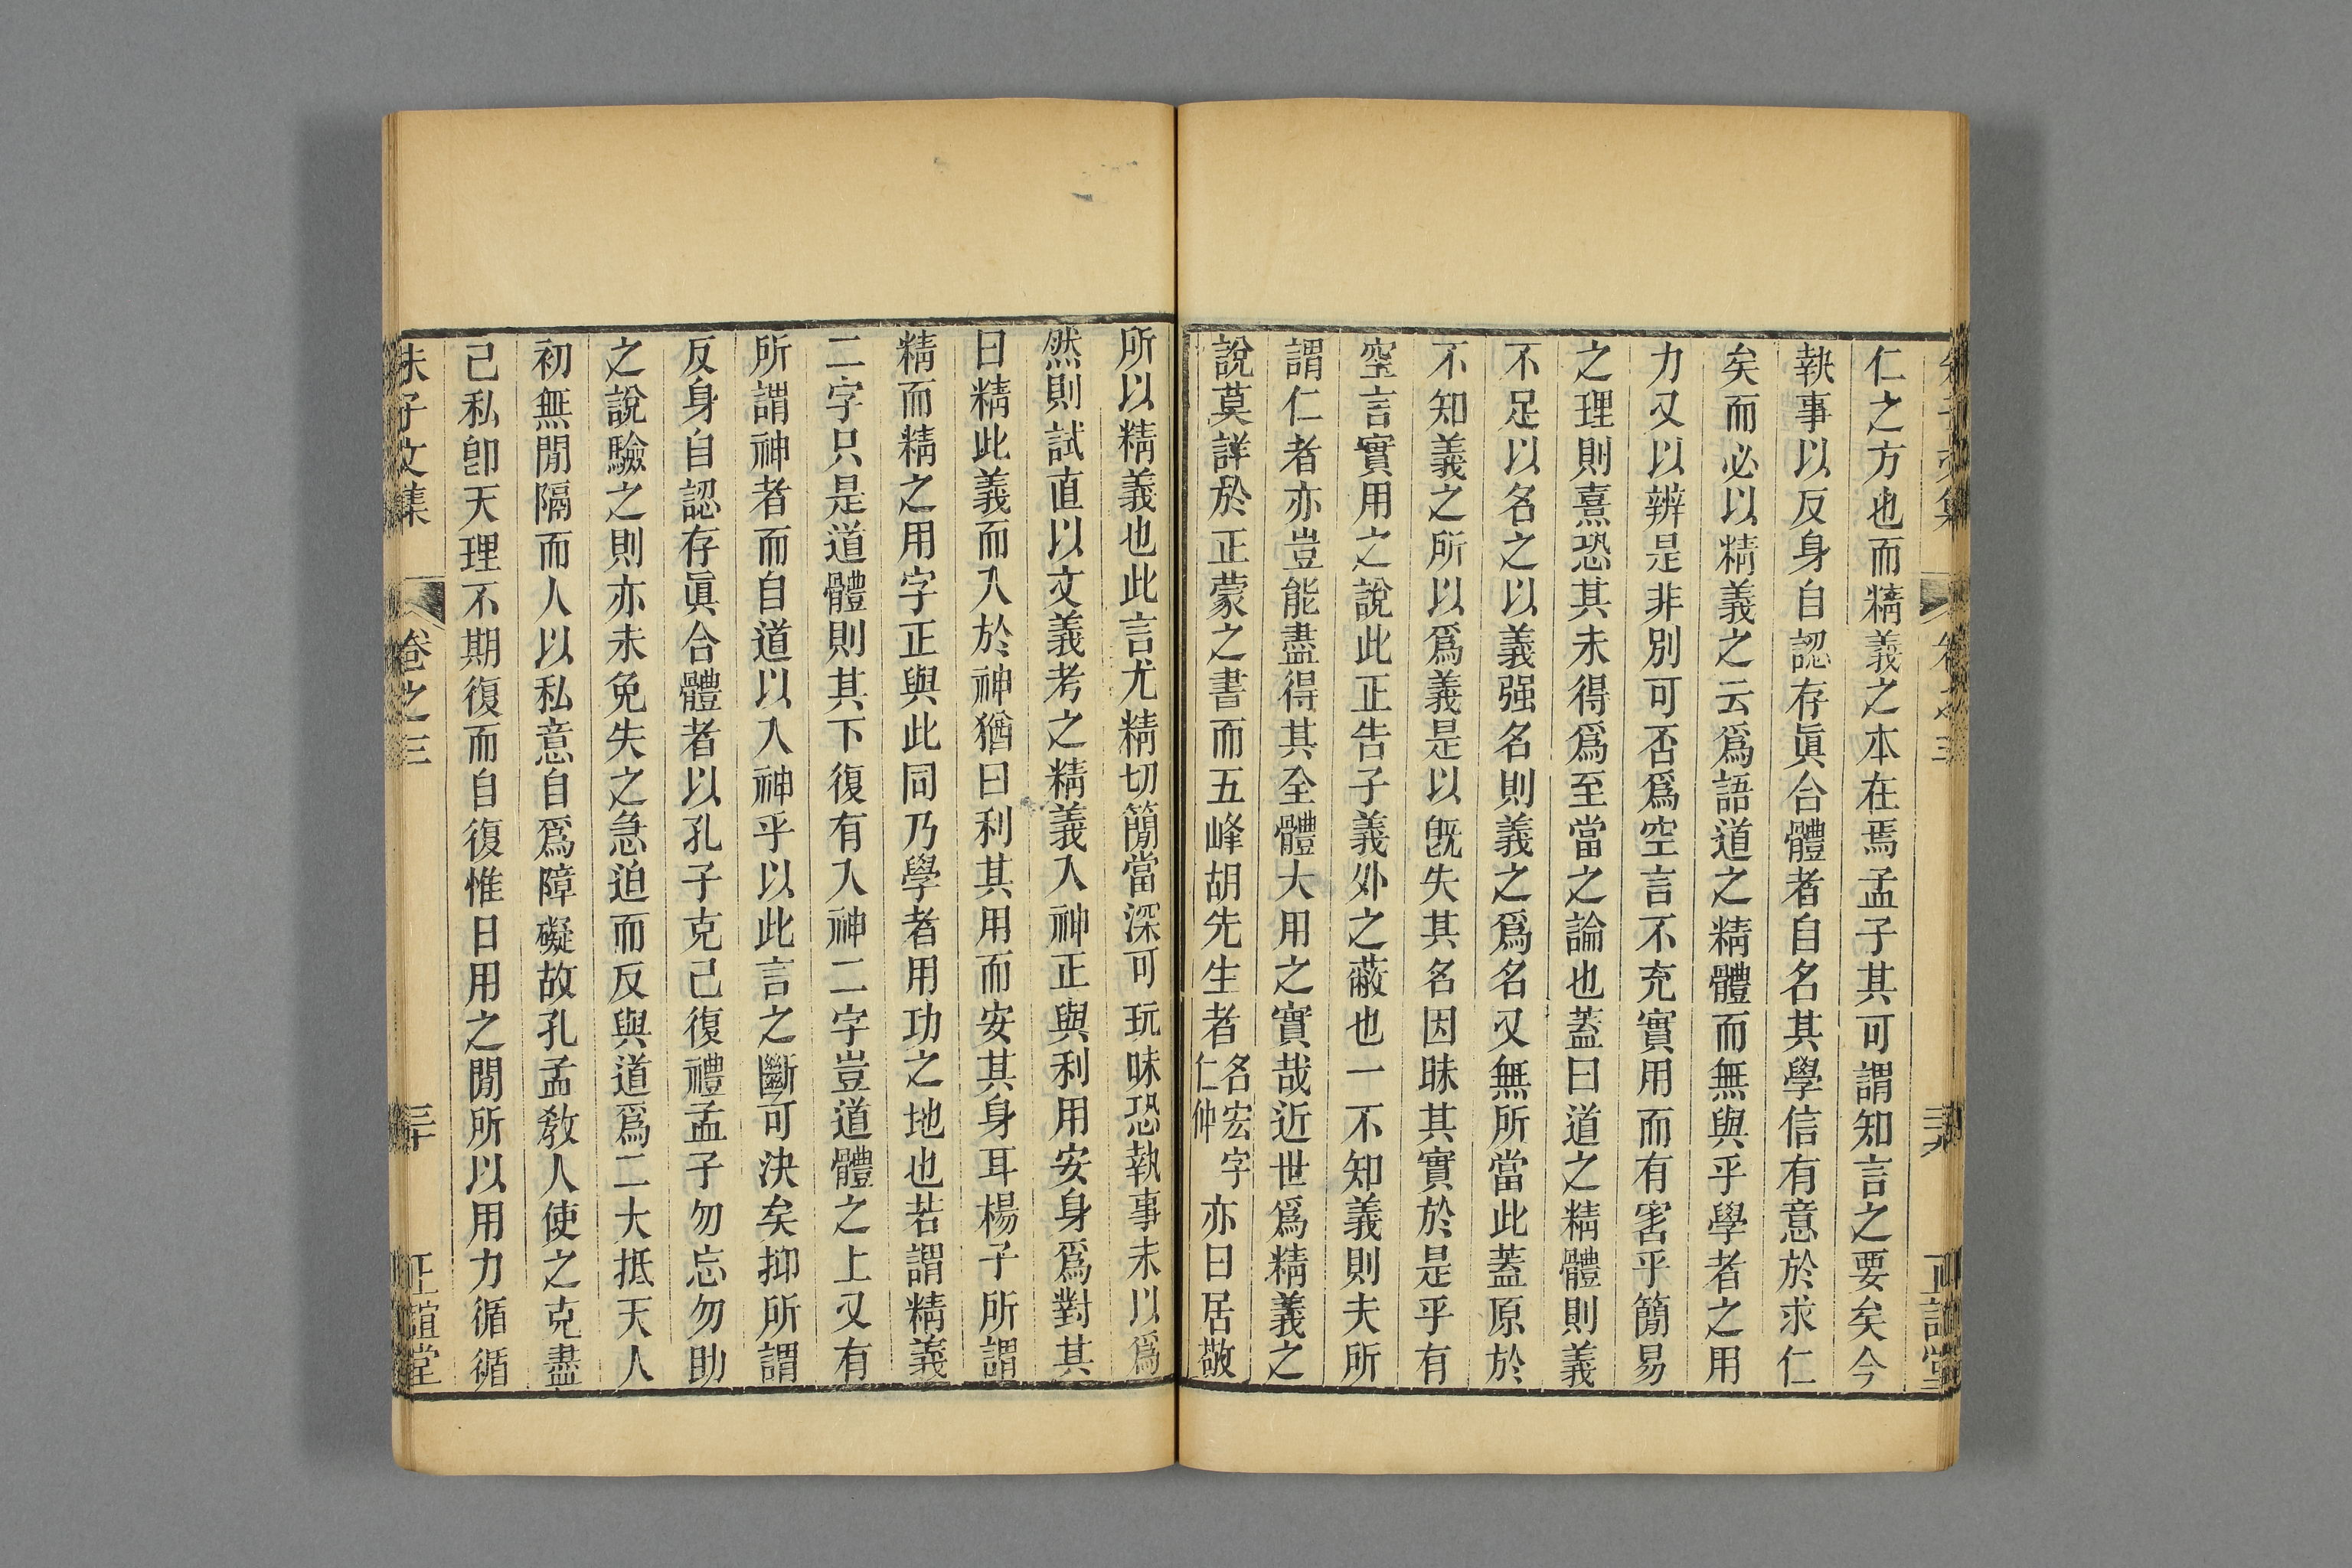 仁之方也而精義之本在焉孟子其可謂知言之要矣今
執事以反身自認存眞合體者自名其學信有意於求仁
矣而必以精義之云爲語道之精體而無與乎學者之用
力又以辨是非別可否爲空言不充實用而有害乎簡易
之理則熹恐其未得爲至當之論也蓋曰道之精體則義
不足以名之以義强名則義之爲名又無所當此蓋原於
不知義之所以爲義是以旣失其名因昧其實於是乎有
空言實用之說此正告子義外之蔽也一不知義則夫所
謂仁者亦豈能盡得其全體大用之實哉近世爲精義之
說莫詳於正蒙之書而五峰胡先生者名宏字仁仲亦曰居敬
所以精義也此言尤精切簡當深可玩味恐執事未以爲
然則試直以文義考之精義入神正與利用安身爲對其
曰精此義而入於神猶曰利其用而安其身耳楊子所謂
精而精之用字正與此同乃學者用功之地也若謂精義
二字只是道體則其下復有入神二字豈道體之上又有
所謂神者而自道以入神乎以此言之斷可決矣抑所謂
反身自認存眞合體者以孔子克己復禮孟子勿忘勿助
之說驗之則亦未免失之急迫而反與道爲二大抵天人
初無閒隔而人以私意自爲障礙故孔孟敎人使之克盡
己私卽天理不期復而自復惟日用之閒所以用力循循
朱子文集 卷之三 三十 正誼堂